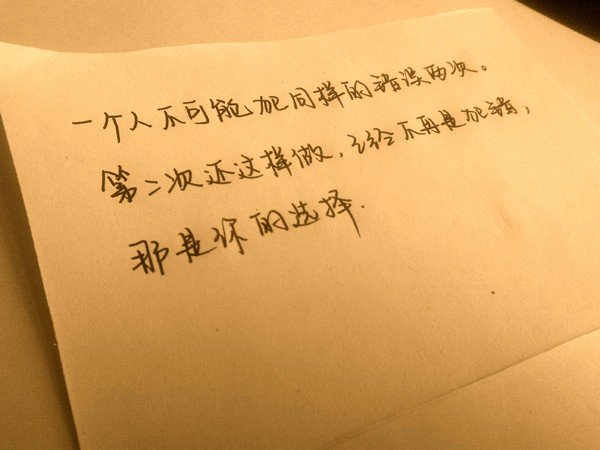 一个人不可能犯同样的错误两次。
第二次还这样做,已经不再是犯错,
那是你的选择.